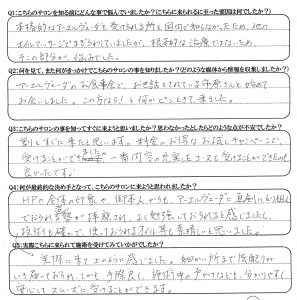 Q1:こちらのサロンを知る前にどんな事で悩んでいましたか?(こちらに来られるに至った要因は何でしたか?)
本格的なアーユルヴェーダを受けられる所を国内で知らなかったため、他の
オイルマッサージでまぎらわせていましたが、根本的な治療ではないため
その部分が悩みでした。
Q2:何を見て、また何がきっかけでこちらのサロンの事を知りましたか?(どのような媒体から情報を収集しましたか?)
アーユルヴェーダのお食事会で、お世話をされている
お会いしました。この方なら!と
Q3:こちらのサロンの事を知ってすぐに来ようと思いましたか?思わなかったとしたらどのような点が不安でしたか?
割とすぐに来たと思います。料金のお得なお試しキャンペーンで
受けることができ 一番内容の充実したコースを受けることができたので
良かったです。
Q4:何が最終的な決め手となって、こちらのサロンに来ようと思われましたか?
HPの全体の印象や、 アーユルヴェーダに真剣にとり組ん
でおられる姿が拝見され、よく勉強しておられると感じましたし、
技術も確かで、使っておられるオイル等も素晴らしいと思いました。
Q5:実際こちらに来られて施術を受けてみていかがでしたか?
実際に来て 細かい所まで気配りが
いき届いておられ、しかも、手際良く、施術中の 分かりやすく
安心してスムーズに受けることができます。